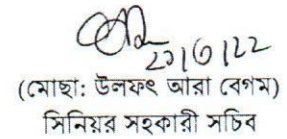 (মোছা: উলফৎ আরা বেগম)
সিনিয়র সহকারী সচিব